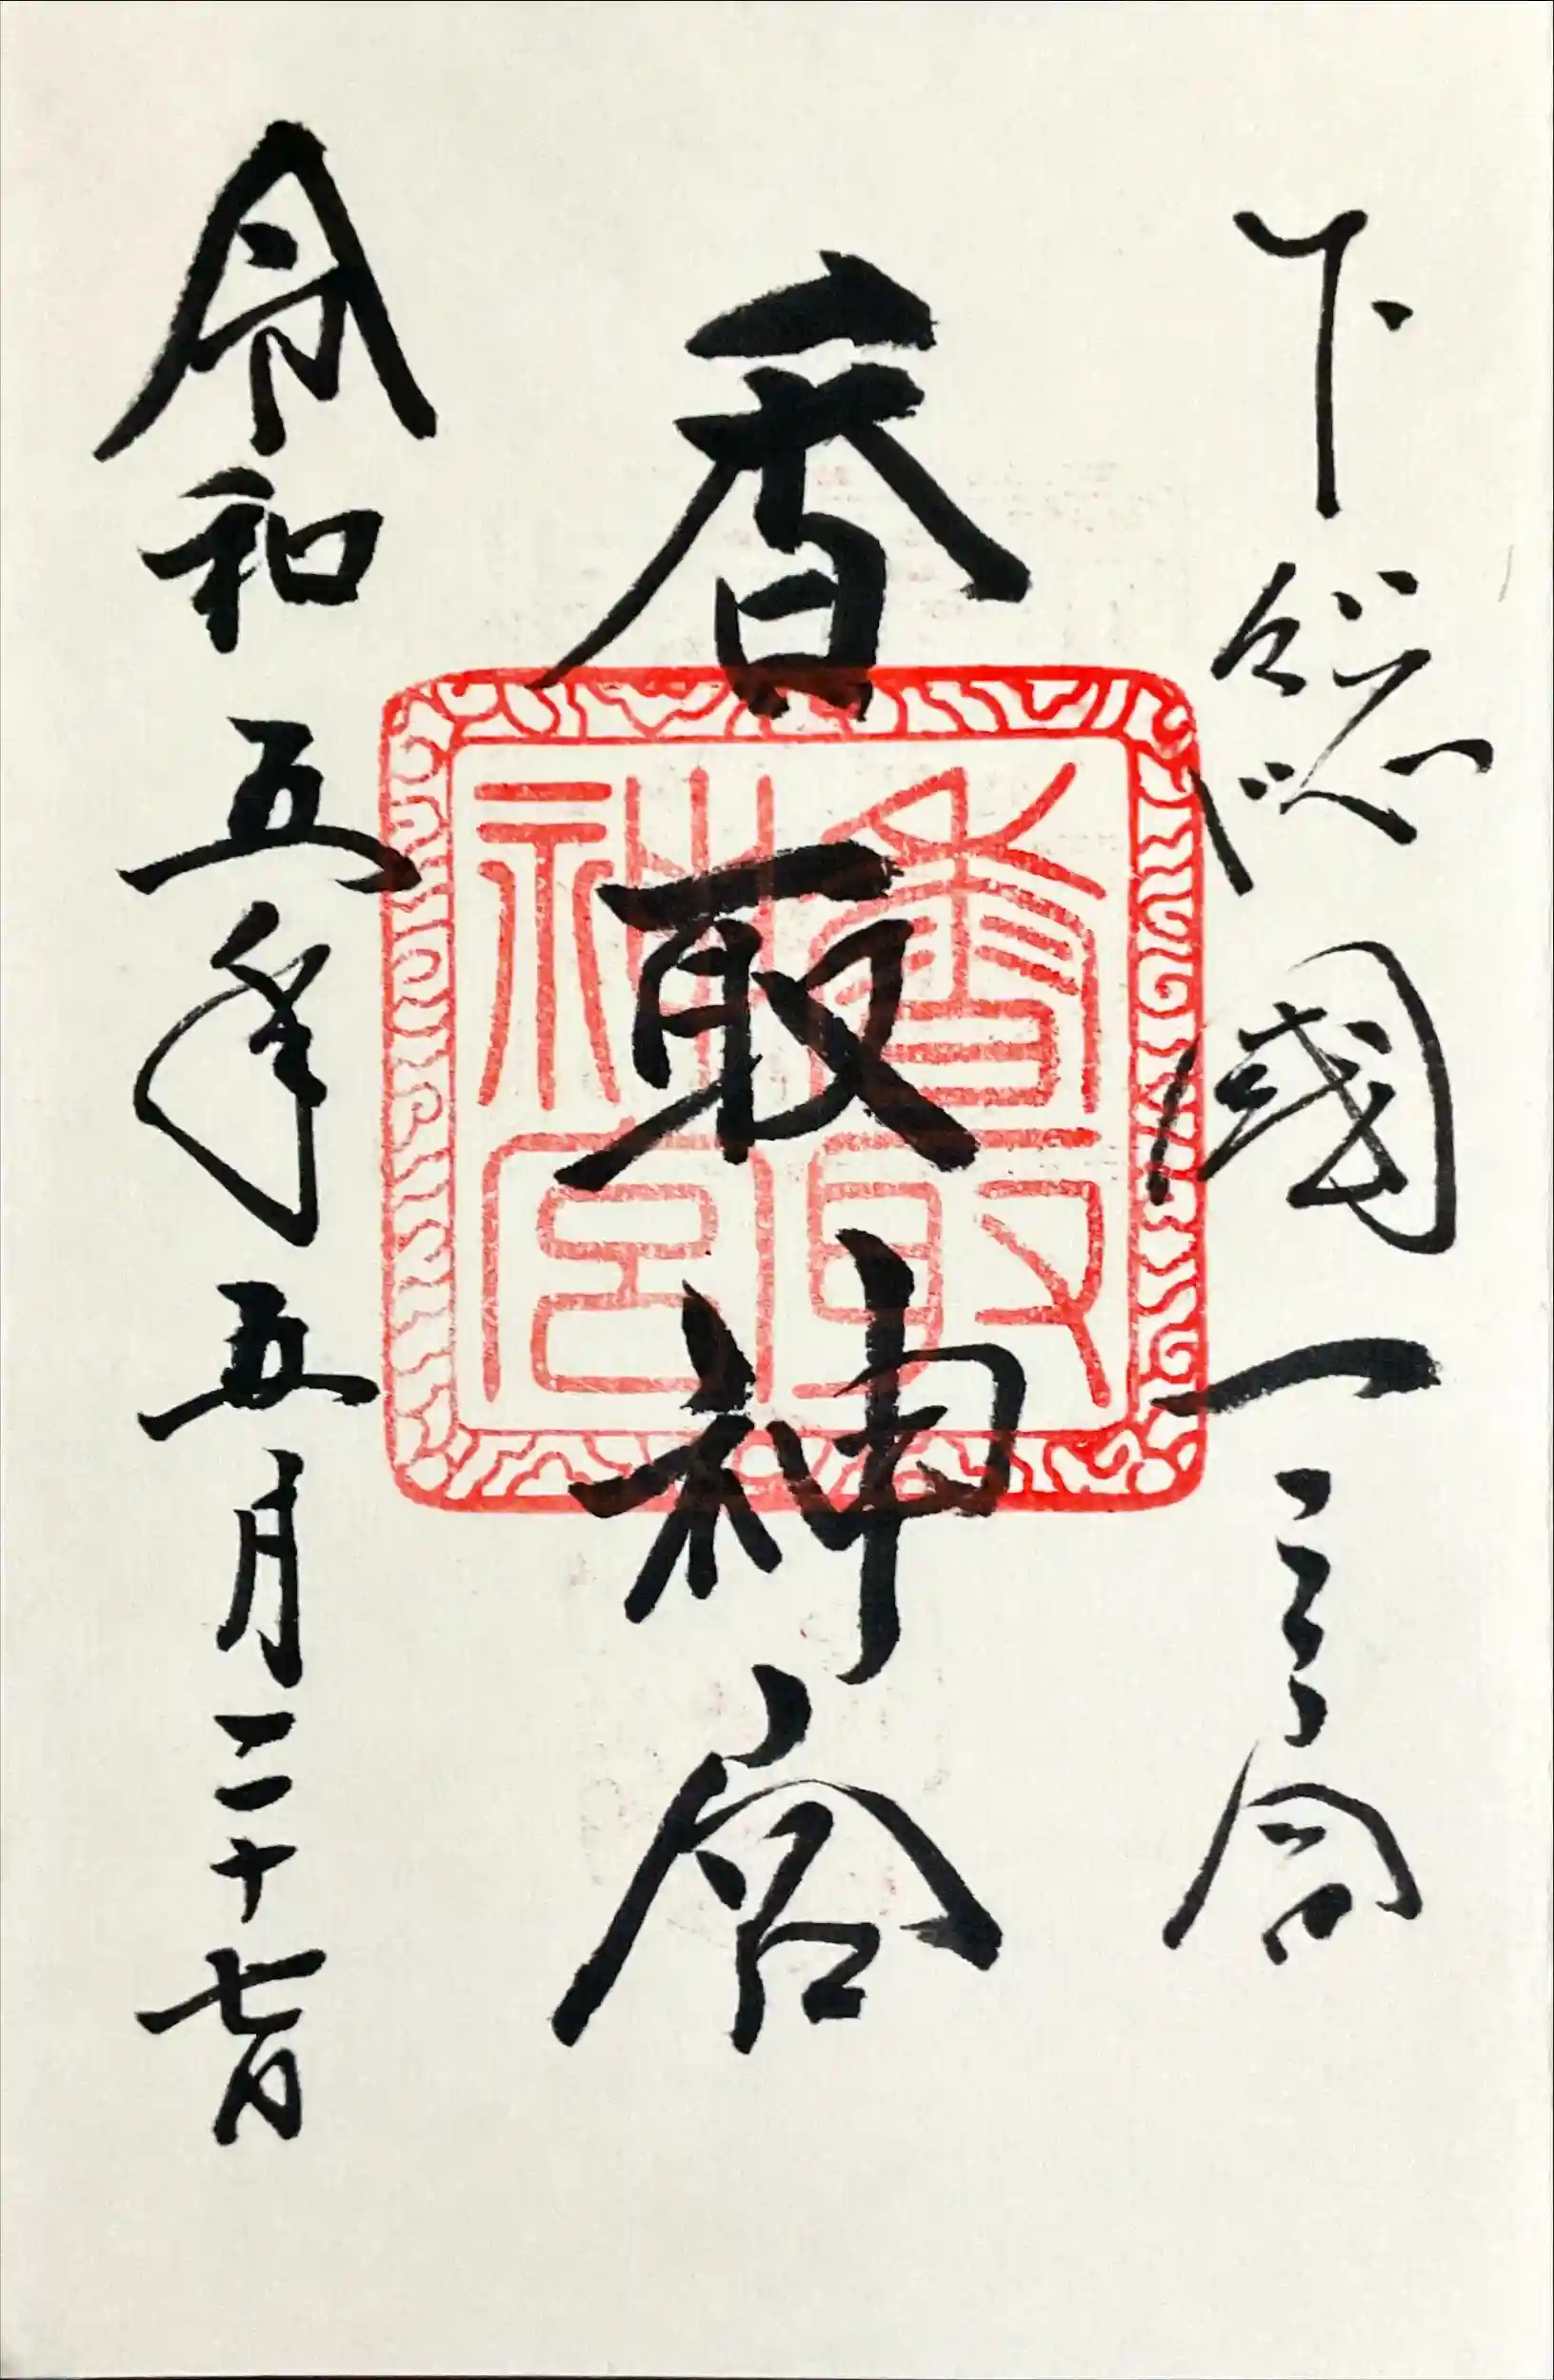 下総國一之宮
香取神宮
香取神宮
令和五年五月二十七日